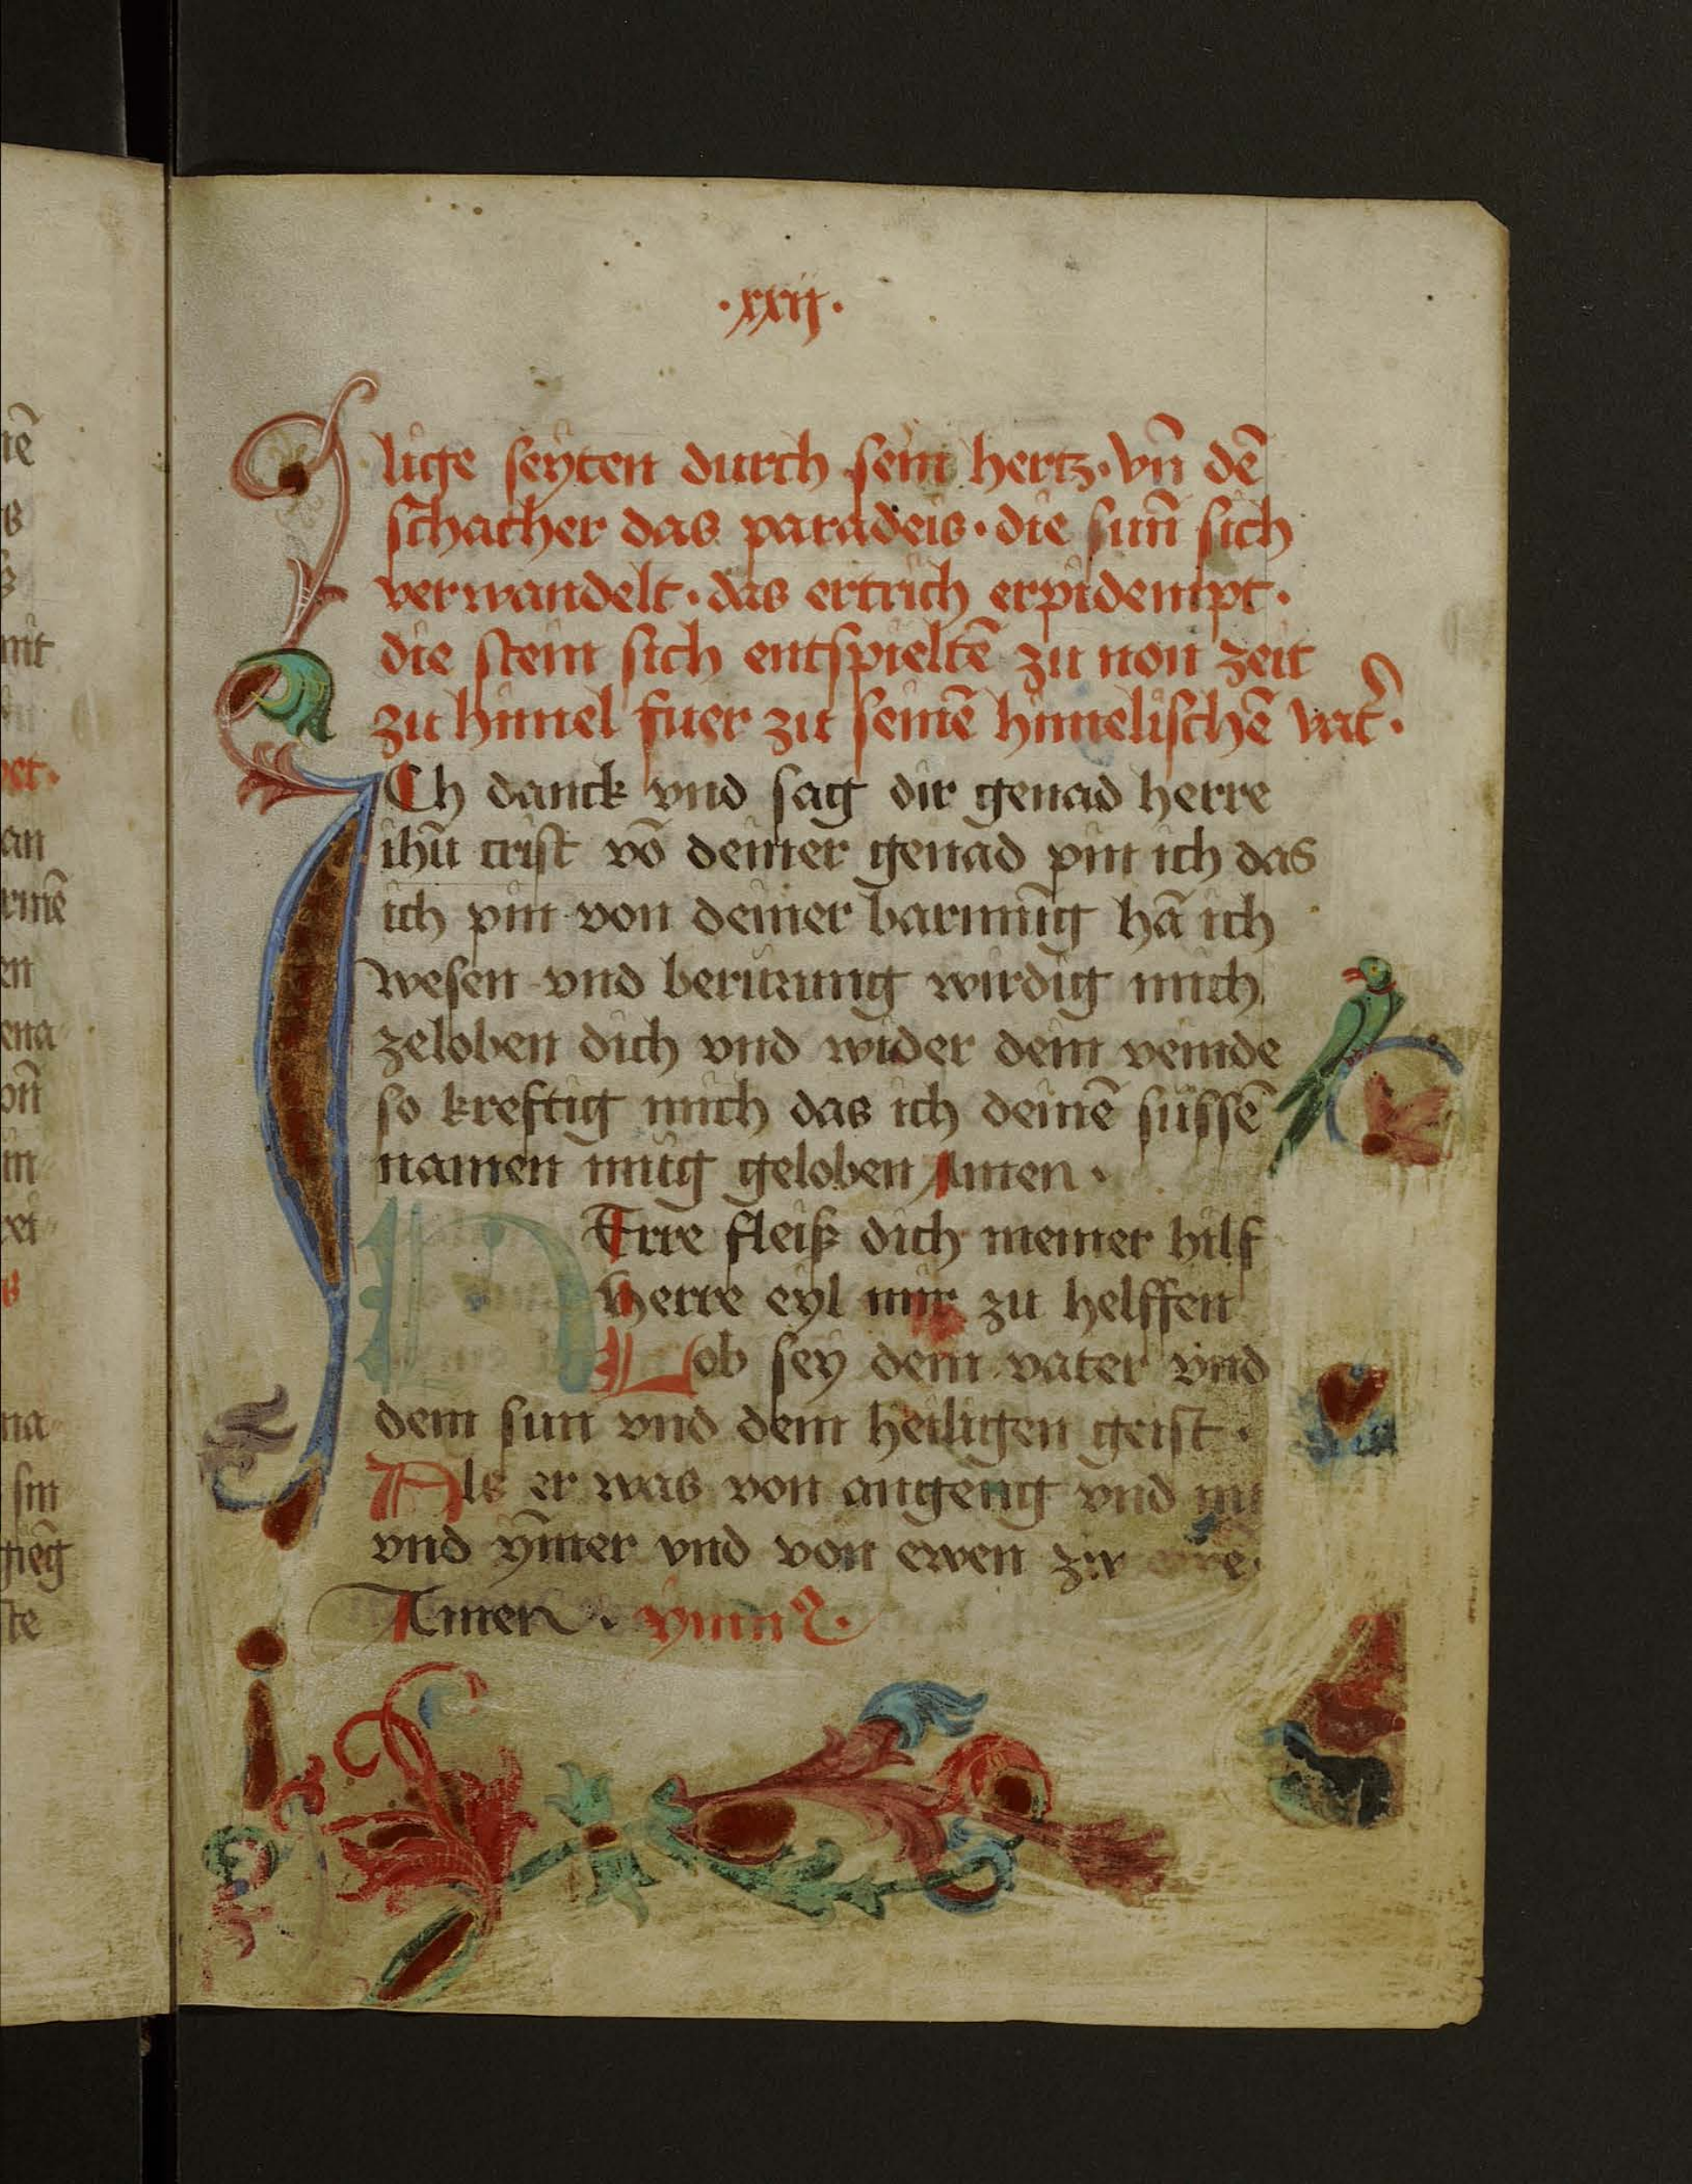 ·xxij·
lige seyten durch sein hertz · vn̄ dē
schacher das paradeis · die sun̄ sich
verwandelt · das ertrich erpidempt ·
die stein sich entspieltē zu non zeit
zu himel fuer zu seinē himelischē vat̄ ·
ICh danck vnd sag dir genad herre
ihū crist vō deiner genad pin ich das
ich pin von deiner barmūg hā ich
wesen vnd berurung wirdig mich
zeloben dich vnd wider dein veinde
so kreftig mich das ich deinē süssē
namen müg geloben Amen ·
HErre fleiß dich meiner hilf
herre eyl mir zu helffen
Lob sey dem vater vnd
dem sun vnd dem heiligen geist ·
Als er was von angeng vnd nu
vnd ȳmer vnd von ewen zu
Amen · ymnꝰ ·